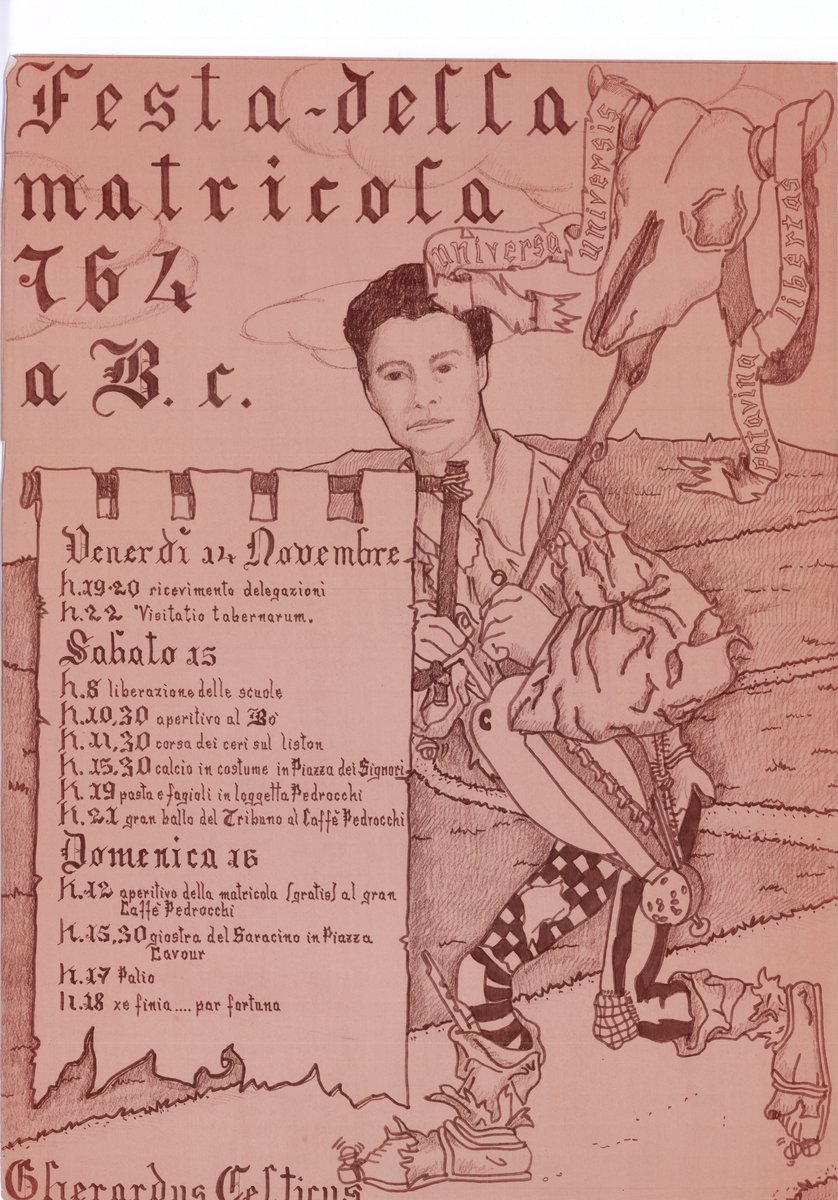 Festa-della
matricola
764
a B. c.
universa
universis
patavina
libertas
Venerdì 14 Novembre
h.19-20 ricevimento delegazioni
h.22 "Visitatio tabernarum.
Sabato 15
h.8 liberazione delle scuole
h.10,30 aperitivo al Bo'
h.11,30 corsa dei ceri sul liston
h.15,30 calcio in costume in Piazza dei Signori
h.19 pasta e fagioli in loggetta Pedrocchi
h.21 gran ballo del Tribuno al Caffè Pedrocchi
Domenica 16
h.12 aperitivo della matricola (gratis) al gran
Caffè Pedrocchi
h.15,30 giostra del Saracino in Piazza
Cavour
h.17 Palio
h.18 xe finia.... par fortuna
C
Gherardus Celticus